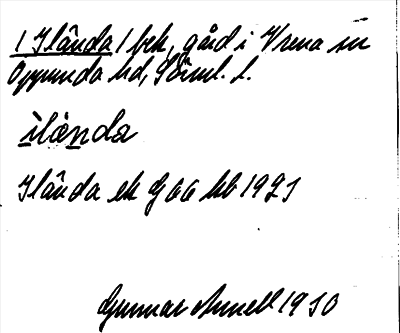 1 Ilânda / bek, gård i Vrena sn
Oppunda hd, Söml. l.
ilànda
Ilânda ek G 66 hb 1921
Gunnar Arnell 1930